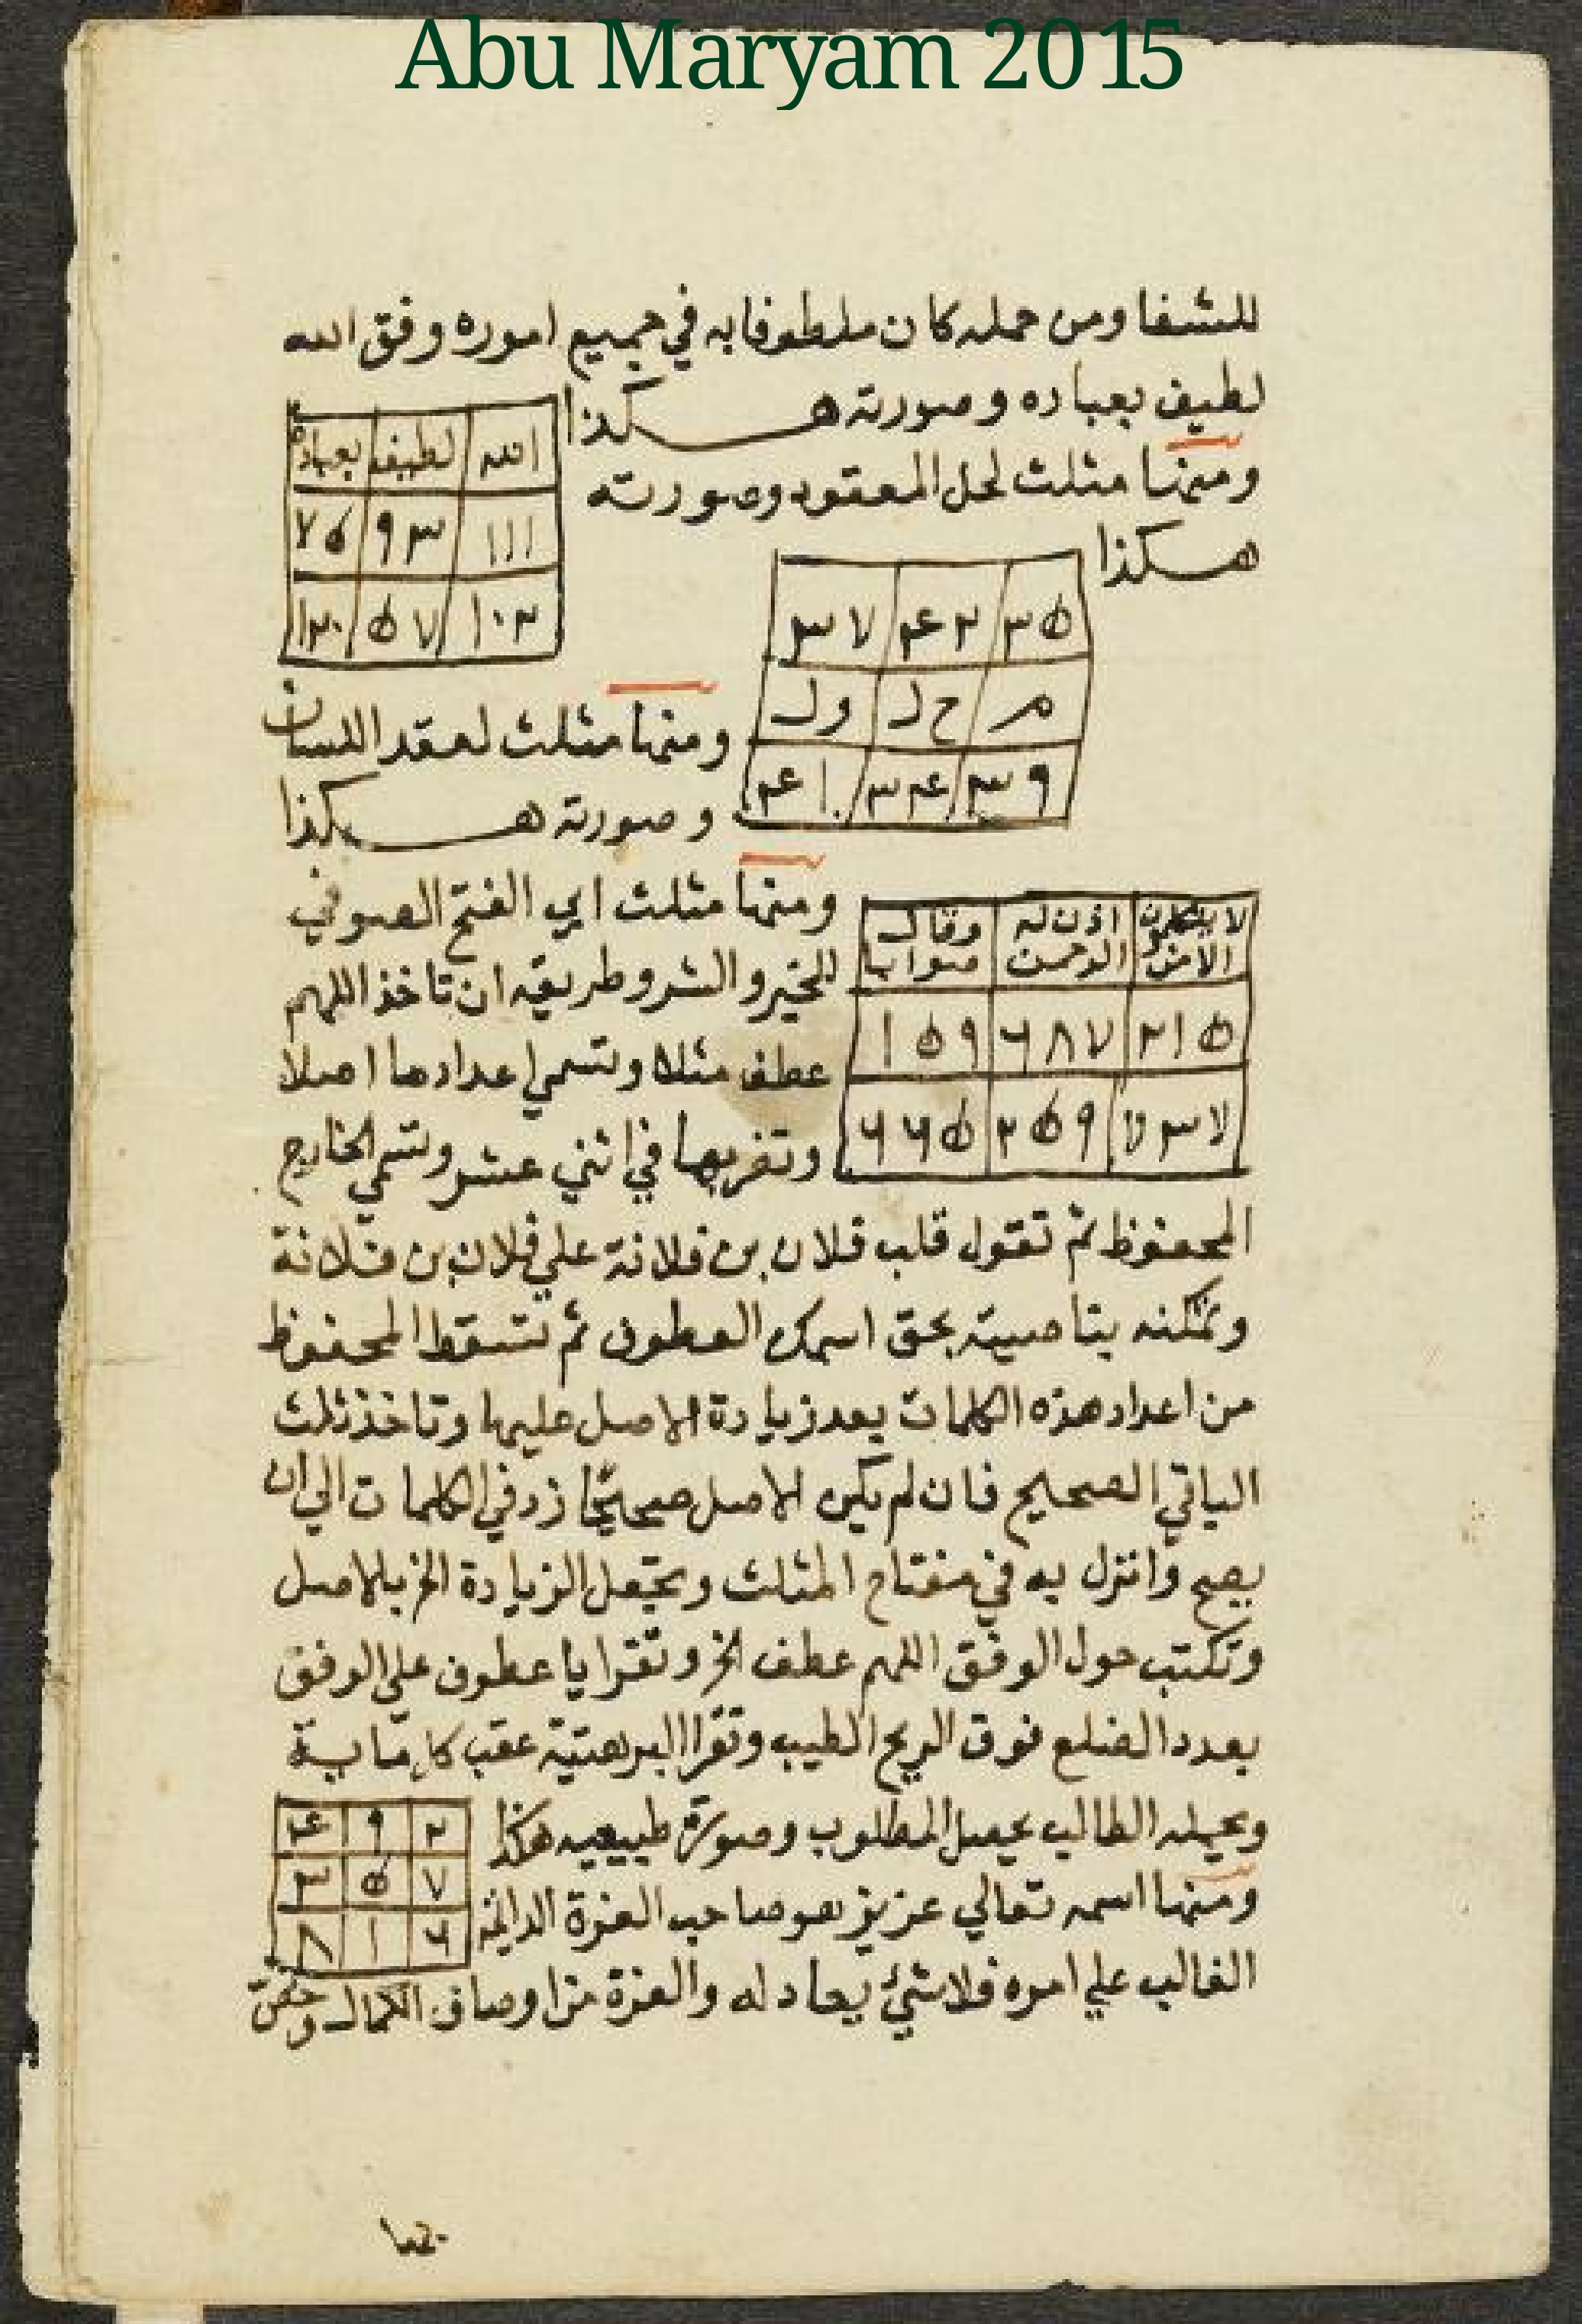 Abu Maryam 2015
للشفا ومن حمله كان ملطوفا به في جميع اموره وفق الله
لطيف بعباده وصورته هكذا
الله لطيف بعباده
١١١ ٩٣ ٧٥
١٠٢ ٥٧ ١٢٠
ومنها مثلث لحل المعقود وصورته
هكذا
٣٥ ٤٢ ٣٧
م ح ل و ل
٣٩ ٣٤ ٤١
ومنها مثلث لعقد اللسان
وصورته هكذا
لا يتكلمون الا من اذن له الرحمن وقال صوابا
٢١٥ ٦٨٧ ١٥٩
٧٣٧ ٢٥٩ ٦٦٥
ومنها مثلث ابي الفتح الصوفي
للخير والشر وطريقه ان تاخذ اللهم
عطف مثلا وتسمي اعدادها اصلا
وتضربها في اثني عشر وتسمي الخارج
المحفوظ ثم تقول قلب فلان بن فلانة علي فلان بن فلانة
وتمكنه بناصيته بحق اسمك العطوف ثم تسقط المحفوظ
من اعداد هذه الكلمات بعد زيادة الاصل عليها وتاخذ ثلث
الباقي الصحيح فان لم يكن الاصل صحيحا زد في الكلمات الي ان
يصح وانزل به في مفتاح المثلث وتجعل الزيادة الخ بالاصل
وتكتب حول الوفق اللهم عطف الخ وتقرا يا عطوف علي الوفق
بعدد الضلع فوق الريح الطيب وتقرا البرهتية عقب كل ماية
ويحمله الطالب يحصل المطلوب وصورة طبيعيه هكذا
٢ ٩ ٤
٧ ٥ ٣
٦ ١ ٨
ومنها اسمه تعالي عزيز هو صاحب العزة الدايمة
الغالب علي امره فلا شيئ يعادله والعزة من اوصاف الكمال